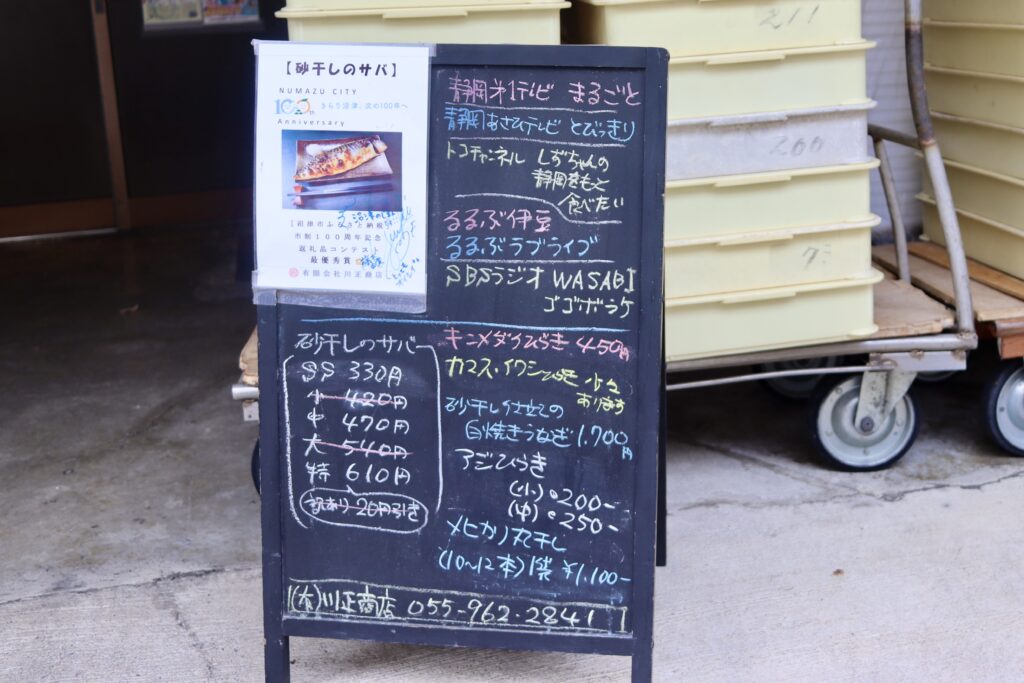 【砂干しのサバ】
NUMAZU CITY
100th
きらり沼津、次の100年へ
Anniversary
沼津市ふるさと納税
市制100周年記念
返礼品コンテスト
最優秀賞
有限会社川正商店
静岡第1テレビ まるごと
静岡あさひテレビ とびっきり
トコチャンネル しずちゃんの
静岡をもと
食べたい
るるぶ伊豆
るるぶラブライブ
SBSラジオ WASABI
ゴゴボラケ
砂干しのサバ
SS 330円
小 420円
中 470円
大 540円
特 610円
訳あり 20円引き
キンメダイひらき 450円
カマス・イワシひらき 少々
あります
砂干し仕立ての
白焼きうなぎ 1,700円
アジひらき
(小) 200-
(中) 250-
メヒカリ丸干し
(10~12本)1袋 ¥1,100-
川正商店 055-962-2841
200